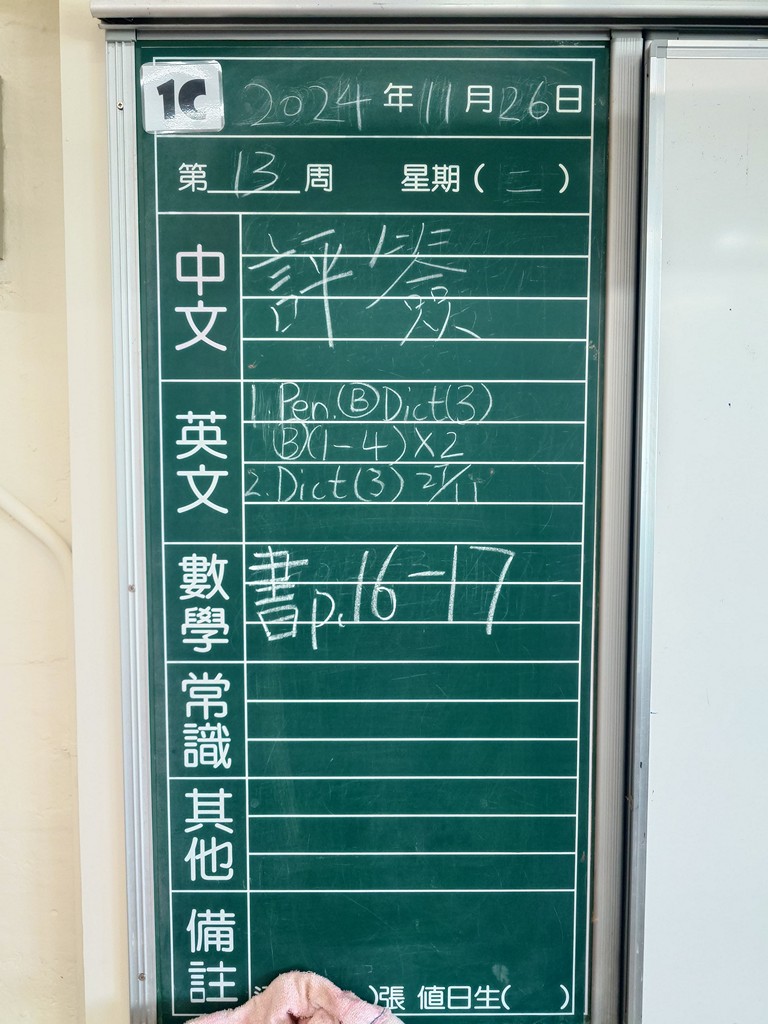 1C
2024年11月26日
第13周 星期(二)
中文
評簽
英文
1. Pen. Ⓑ Dict(3)
Ⓑ(1-4)X2
2. Dict(3) 27/11
數學
書p.16-17
常識
其他
備註
)張 值日生( )